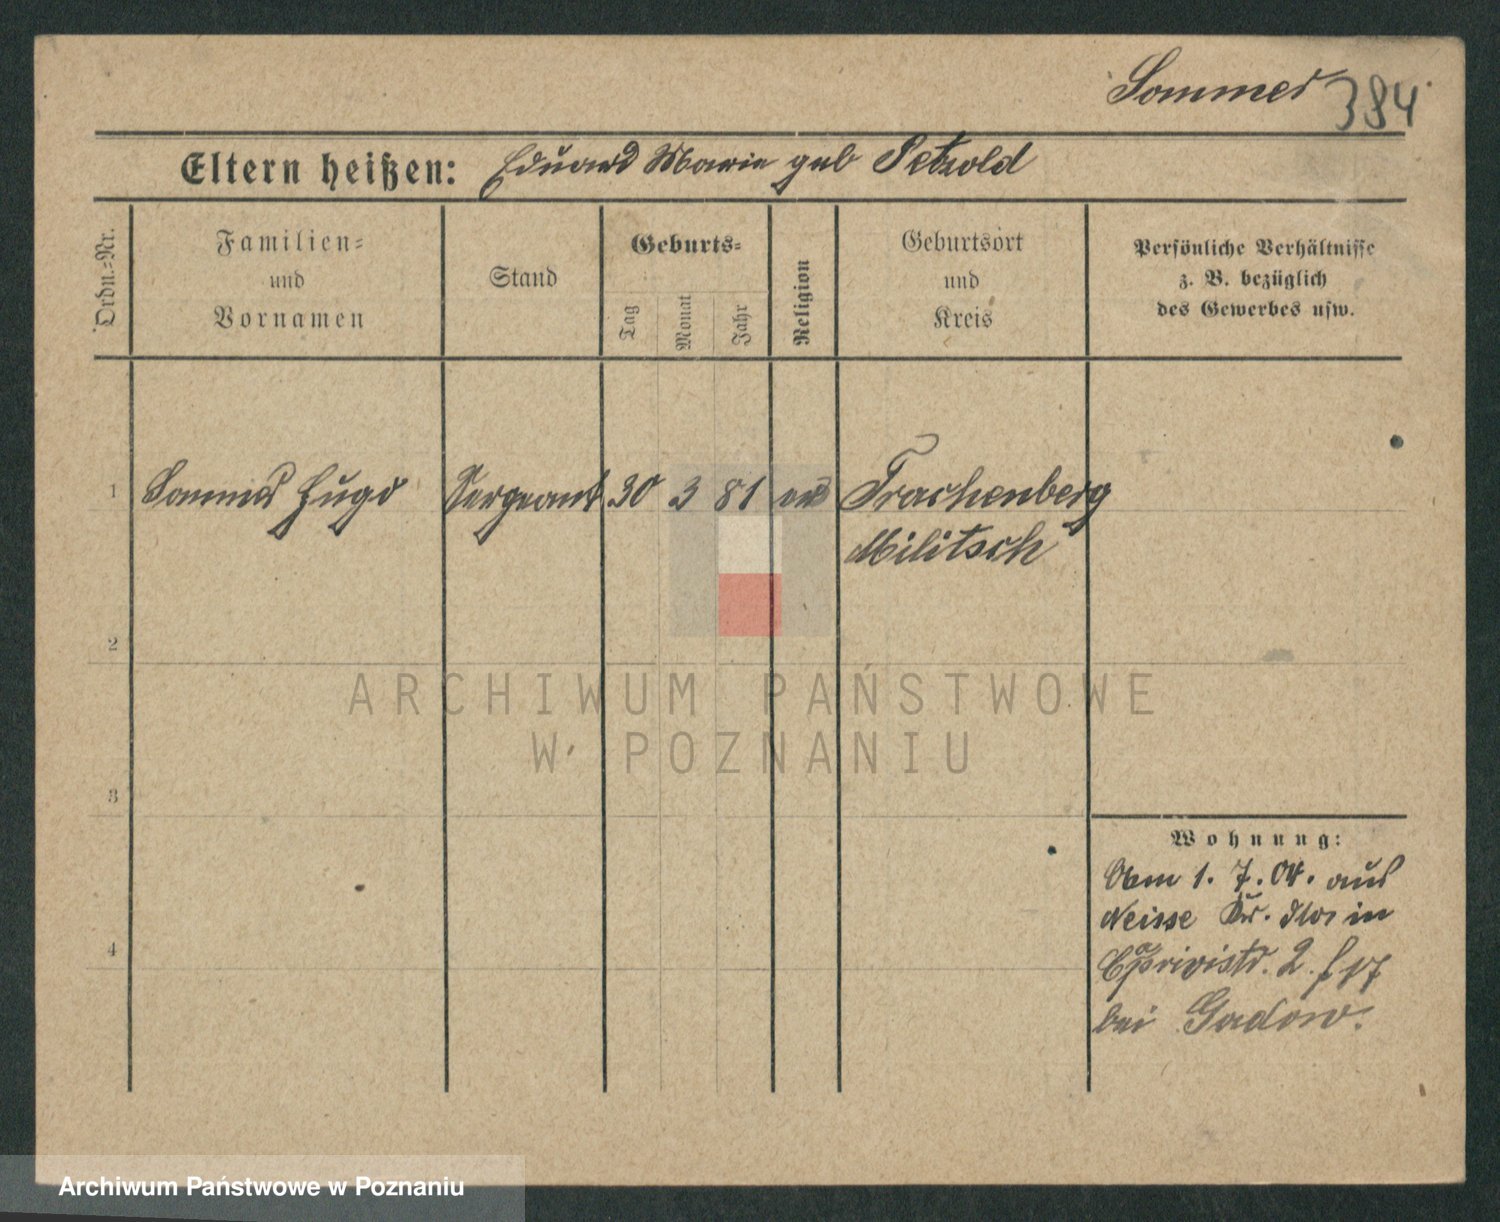 Sommer 384
Eltern heißen: Eduard Marie geb Petzold
Ordn.=Nr.
Familien=
und
Vornamen
Stand
Geburts=
Tag
Monat
Jahr
Religion
Geburtsort
und
Kreis
Persönliche Verhältnisse
z. B. bezüglich
des Gewerbes usw.
1 Sommer Hugo Sergeant 30 3 81 Trachenberg
Militsch
2
ARCHIWUM PAŃSTWOWE
W POZNANIU
3
Wohnung:
Am 1. 7. 04. aus
Neisse in
4
Caprivistr. 2.
bei Gadow.
Archiwum Państwowe w Poznaniu